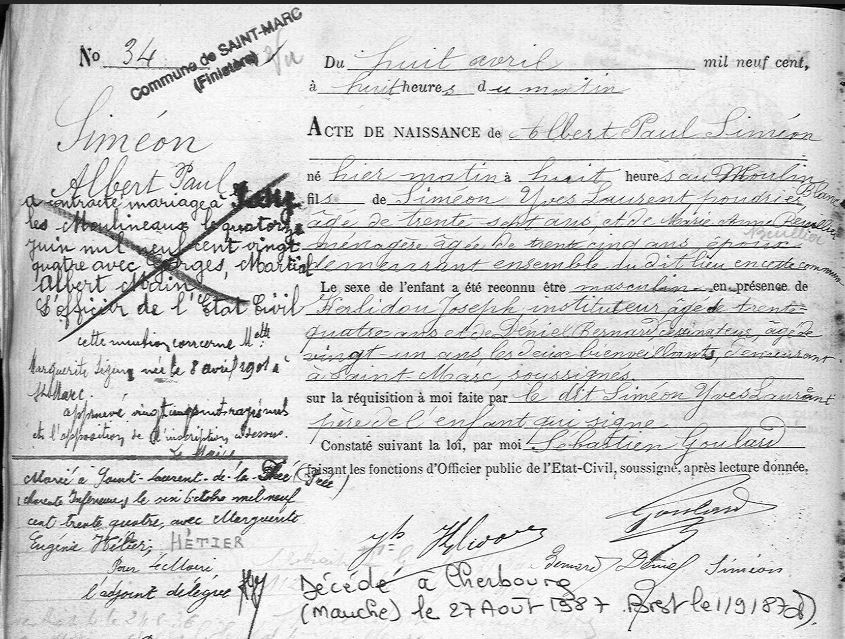 No 34
Commune de SAINT-MARC
(Finistère)
Siméon
Albert Paul
a contracté mariage à
les Moulineaux le quatorze
juin mil neuf cent vingt
quatre avec Georges, Martial
Albert
L'officier de l'Etat Civil
cette mention concerne Melle
Marguerite née le 8 avril 1901 à
St Marc
approuvé vingt cinq mots rayés nuls
et l'apposition de l'inscription ci-dessus.
Le Maire
Marié à Saint-Laurent-de-la-Prée (Prée)
(Charente Inférieure) le six octobre mil neuf
cent trente quatre, avec Marguerite
Eugénie Hétier, HÉTIER
Pour le Maire
l'adjoint délégué
Du huit avril mil neuf cent,
à huit heures du matin
ACTE DE NAISSANCE de Albert Paul Siméon
né hier matin à huit heures au Moulin Blanc
fils de Siméon Yves Laurent, poudrier
âgé de trente-sept ans, et de Marie Anne
ménagère âgée de trente cinq ans époux
demeurant ensemble du dit lieu en cette commune
Le sexe de l'enfant a été reconnu être masculin en présence de
Joseph, instituteur, âgé de trente-
quatre ans et de Déniel Bernard, dessinateur, âgé de
vingt-un ans, les deux bienveillants, demeurant
à Saint-Marc, soussignés
sur la réquisition à moi faite par le dit Siméon Yves Laurent
père de l'enfant qui signe
Constaté suivant la loi, par moi Sébastien Goulard
faisant les fonctions d'Officier public de l'Etat-Civil, soussigné, après lecture donnée.
Goulard
Bernard Déniel Siméon
Décédé à Cherbourg
(Manche) le 27 Août 1987. Brest le 1 9 1987